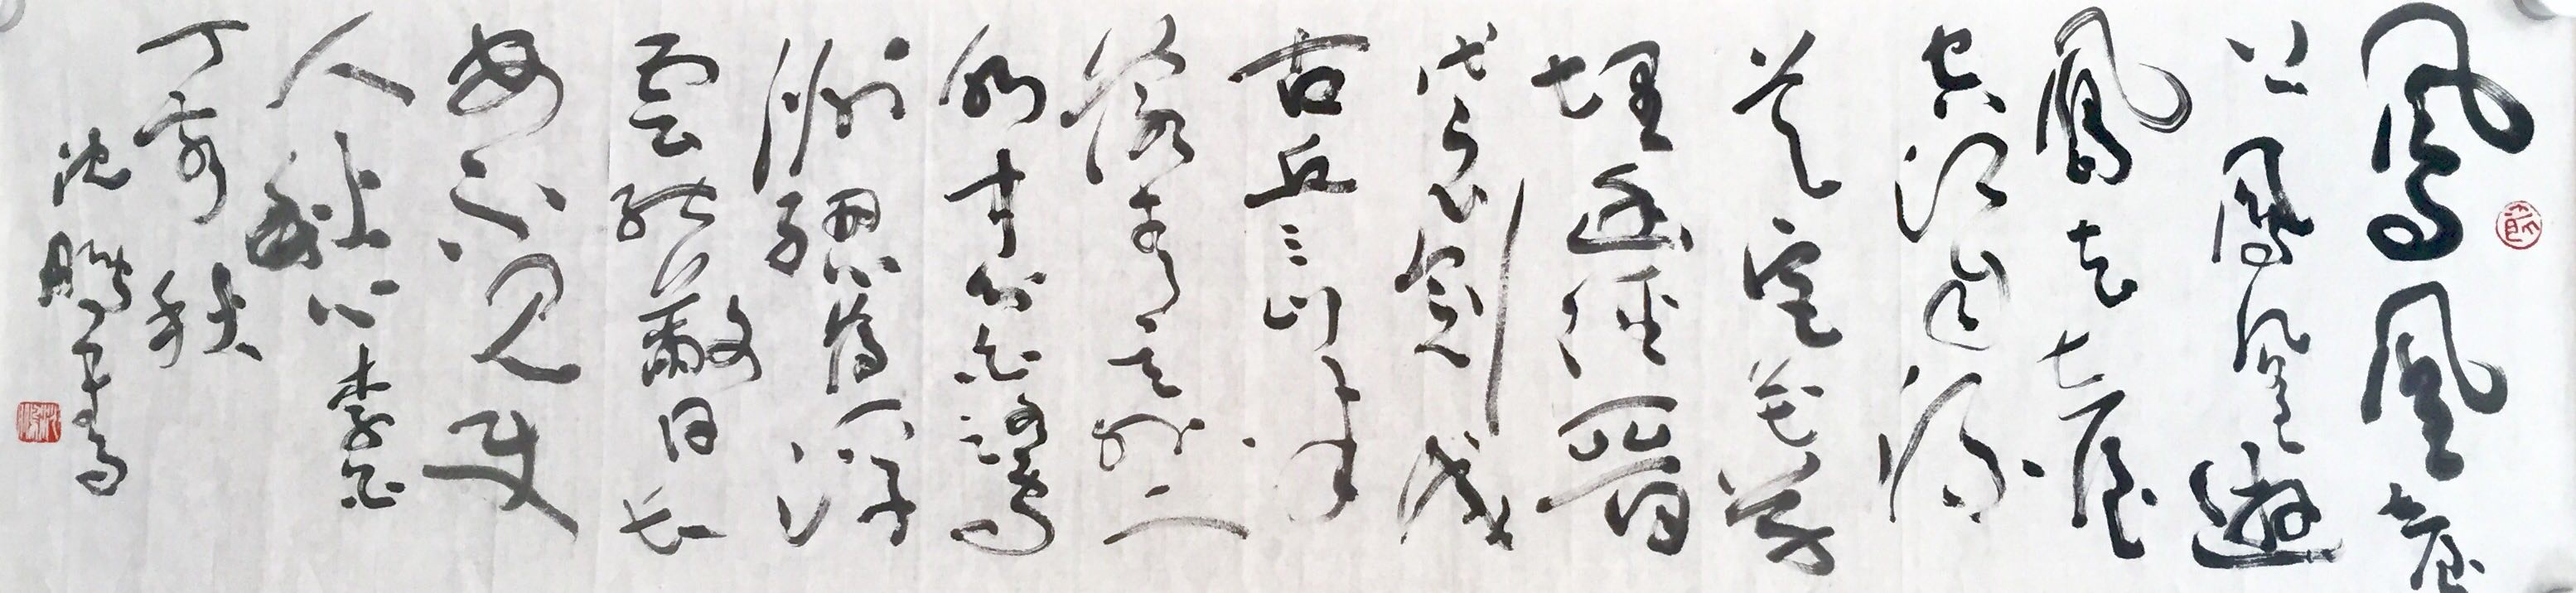 鳳凰臺
上鳳凰遊
鳳去臺
空江自流
吳宮花草
埋幽徑晉
代衣冠成
古丘三山半
落青天外二
水中分白鷺
洲總為浮
雲能蔽日長
安不見使
人愁李白
丁酉秋
沈鵬書